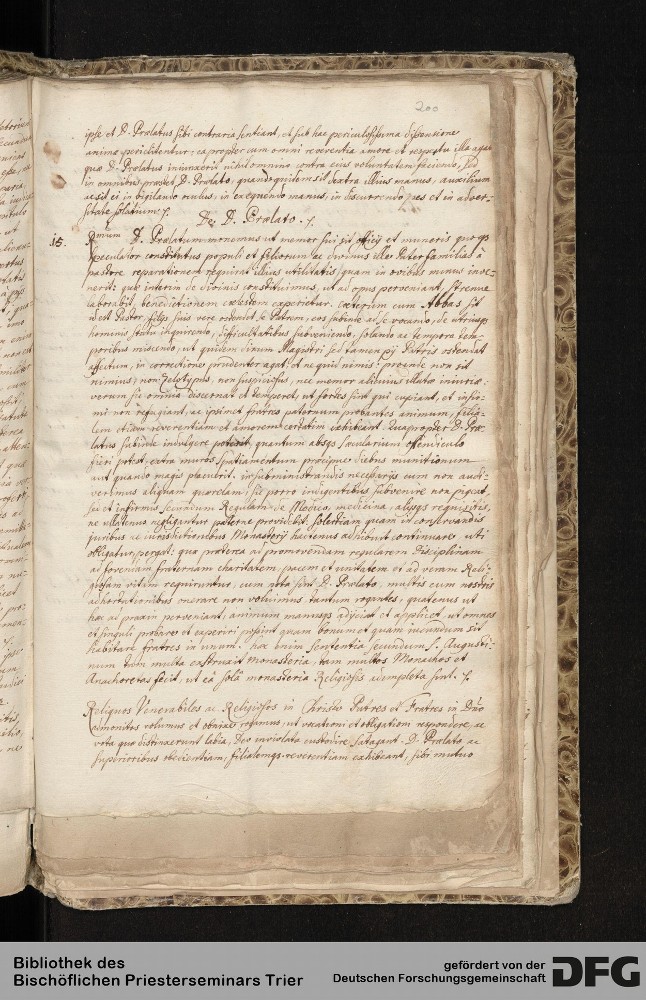 200
ipse et D. Prælatus sibi contraria sentiant, et sub hac periculosissima dissensione
animæ periclitentur; eapropter cum omni reverentia amore et respectu illa agat
quæ D. Prælatus iniunxerit nihil omnino contra eius voluntatem faciendo, sed
in omnibus præstet D. Prælato, quandoquidem sit dextra illius manus, auxilium
ac sit ei in vigilando oculus, in exequendo manus, in discurrendo pes et in adver-
sitate solatium.
De D. Prælato.
15.
Rmum D. Prælatum monemus ut memor sui sit officij et muneris quo
speculator constitutus populi et filiorum ac divinus ille Pater familias à
pastore reparationem requirat illius utilitatis, quam in ovibus minus inve-
nerit; quæ interim de divinis constituimus, ut ad opus perveniant, strenue
laborabit, benedictionem cælestem experietur. cæterum cum Abbas sit
id est Pastor, filijs suis vere ostendet se Patrem, eos subinde ad se vocando, de utriusque
hominis statu inquirendo, difficultatibus subveniendo, solando ac tempora tem-
poribus miscendo, ut quidem dirum Magistri sed tamen pij Patris ostendat
affectum, in correctione prudenter agat, et ne quid nimis: proinde non sit
nimius, non Zelotypus, non suspiciosus, nec memor alicuius illatæ iniuriæ:
verum sic omnia discernat et temperet, ut fortes sint qui cupiant, et infir-
mi non refugiant, ac ipsimet fratres paternum probantes animum, filia-
lem etiam reverentiam et amorem certatim exhibeant. Quapropter D. Præ-
latus subinde indulgere poterit, quantum absque sæcularium offendiculo
fieri potest, extra muros spatiamentum præcipue diebus minutionum
aut quando magis placuerit. in subministrandis necessarijs cum non audi-
verimus aliquam querelam, sic porro indigentibus subvenire non pigeat,
sed et infirmis secundum Regulam de Medico, medicina, alijsque requisitis,
ne ullatenus negligantur paterne providebit. solertiam quam in conservandis
juribus ac iurisdictionibus Monasterij hactenus adhibuit continuare uti
obligatur pergat: quæ præterea ad promovendam regularem disciplinam
ad fovendam fraternam charitatem, pacem et unitatem et ad veram Reli-
giosam vitam requiruntur, cum nota sint D. Prælato, multis eum nostris
adhortationibus onerare non voluimus. tantum rogantes, quatenus ut
hæc ad praxin perveniant, animum manusque adjiciat et applicet, ut omnes
et singuli probare et experiri possint quam bonum et quam iucundum sit
habitare fratres in unum. hæc enim sententia secundum S. Augusti-
num tum multa extruxit monasteria, tam multos Monachos et
Anachoretas fecit, ut ea sola monasteria Religiosis adimpleta sint.
Reliquos Venerabiles ac Religiosos in Christo Patres et Fratres in Dño
admonitos volumus et obnixe rogamus, ut vocationi et obligationi respondere, ac
vota quæ distinxerunt labia, Deo inviolata custodire satagant. D. Prælato ac
superioribus obedientiam, filialemque reverentiam exhibeant, sibi mutuo
Bibliothek des
Bischöflichen Priesterseminars Trier
gefördert von der
Deutschen Forschungsgemeinschaft
DFG